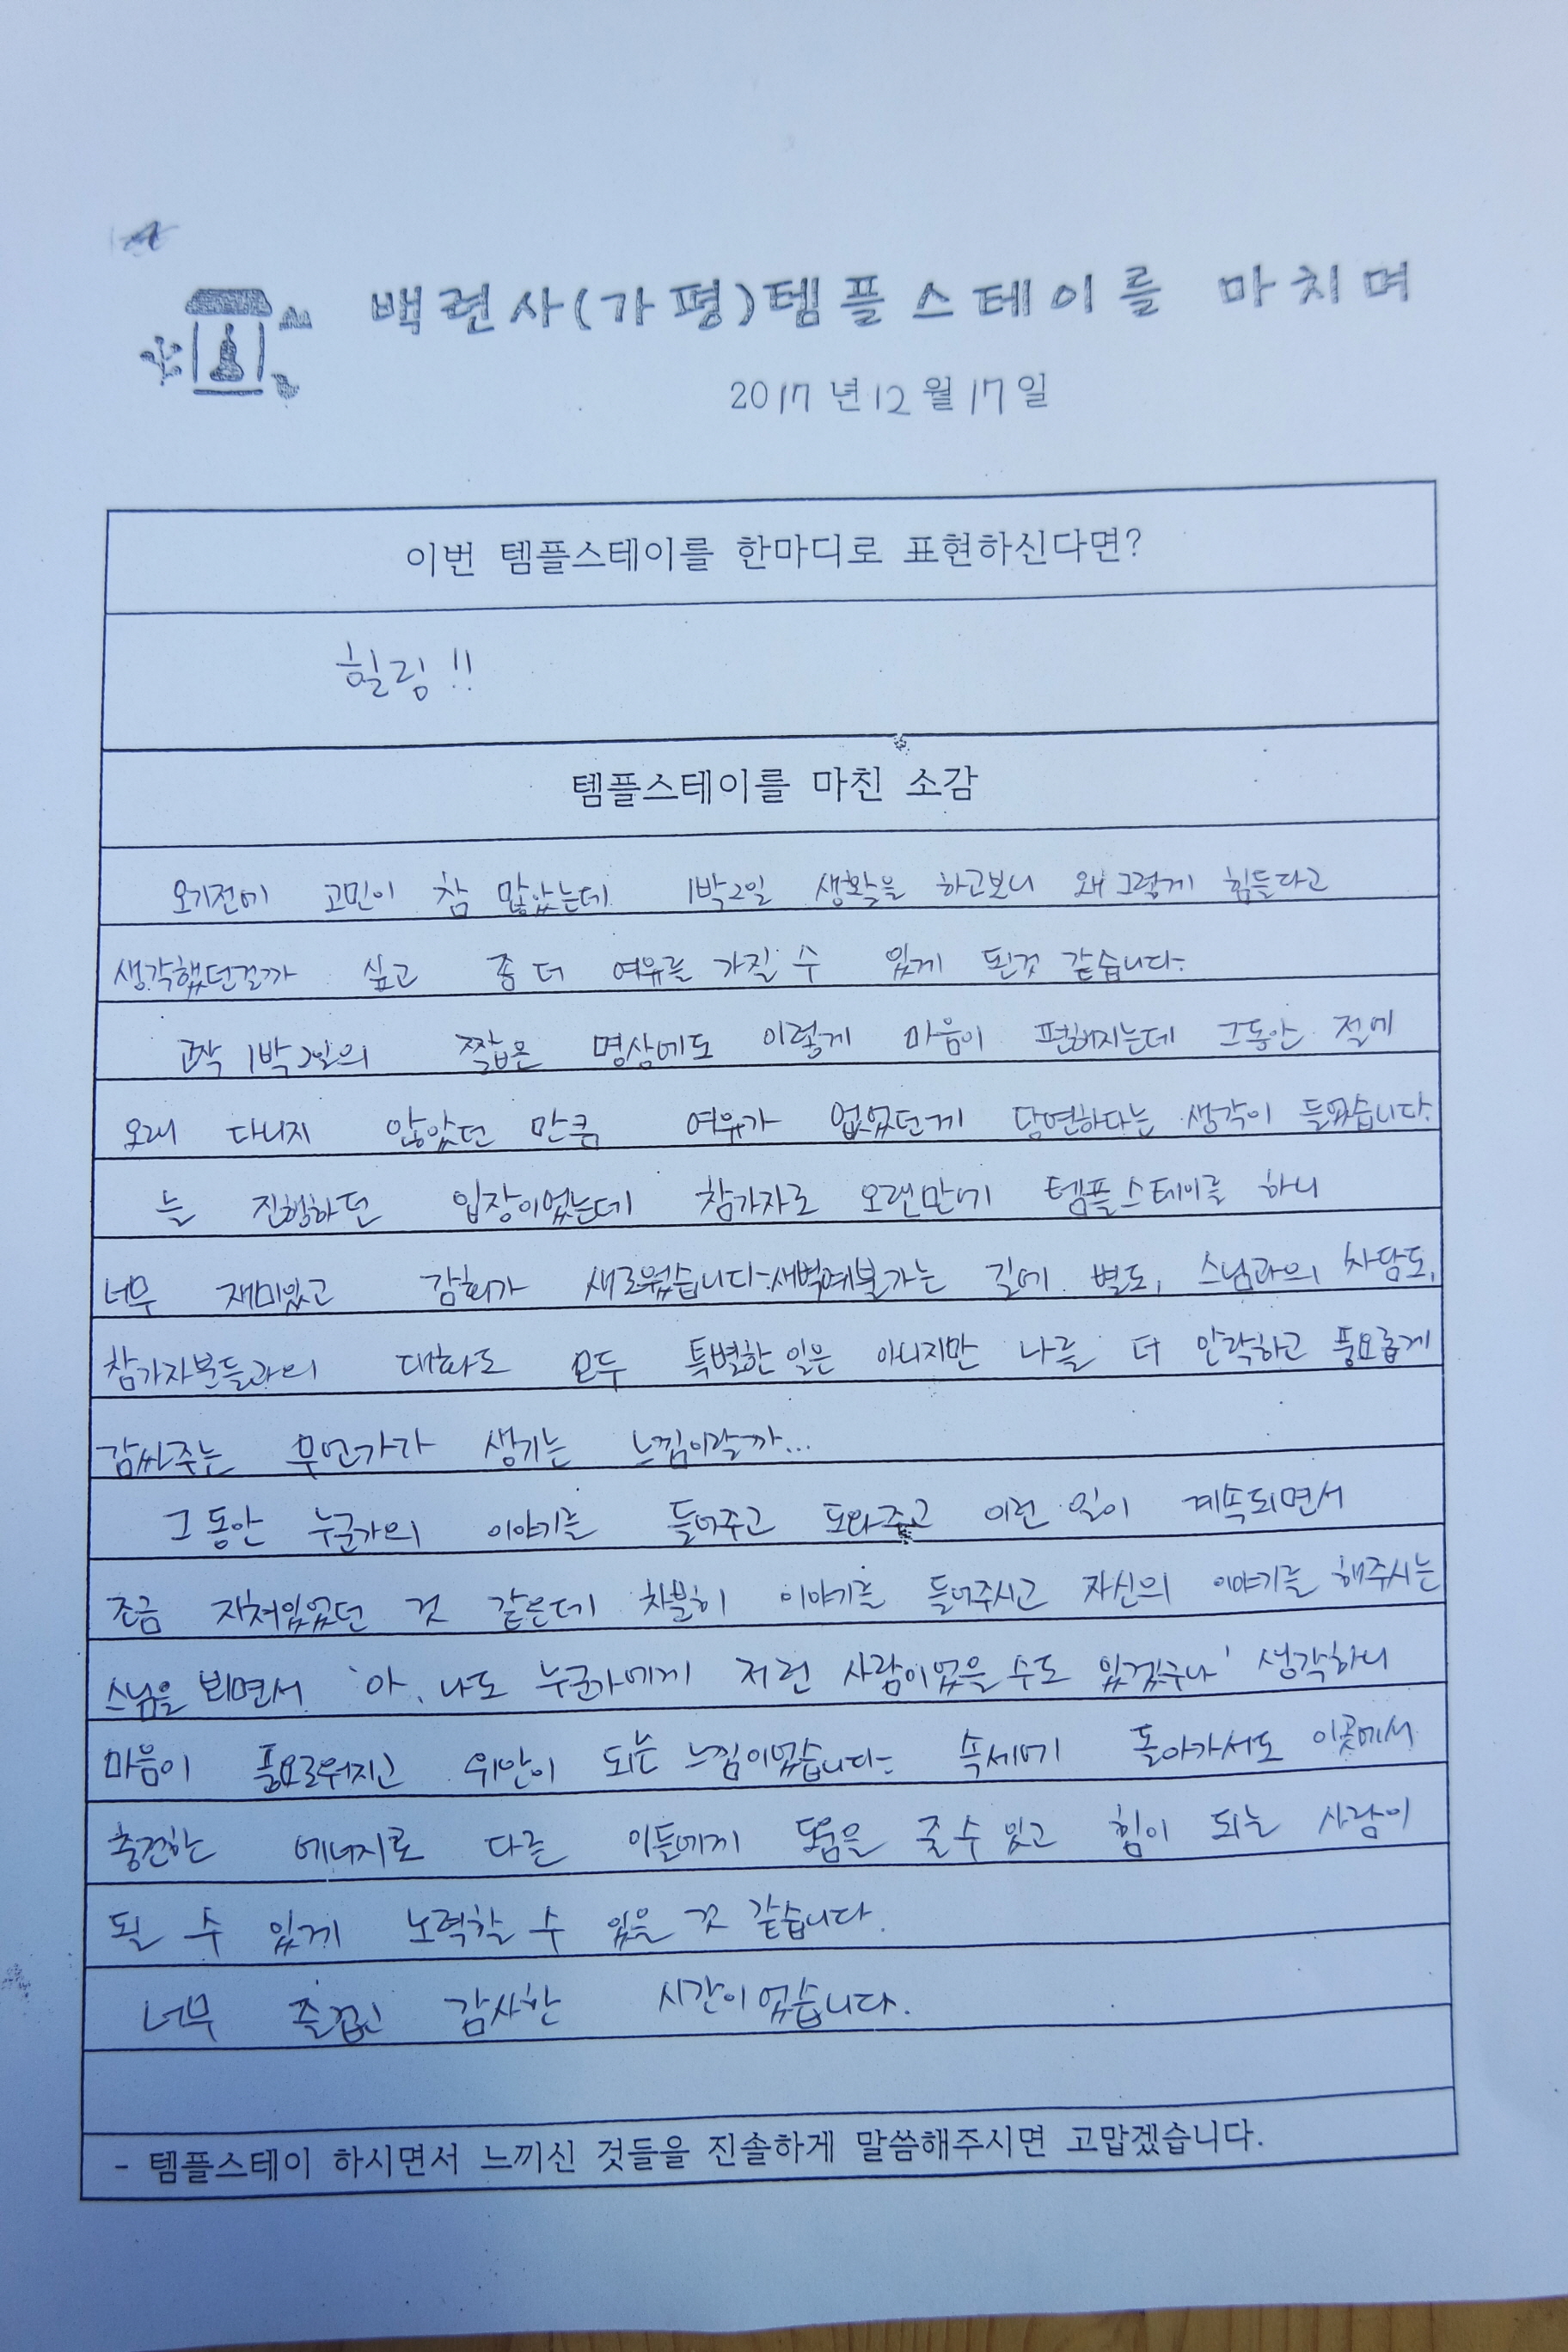 백련사(가평)템플스테이를 마치며
2017년 12월 17일
이번 템플스테이를 한마디로 표현하신다면?
힐링!!
템플스테이를 마친 소감
오기전에 고민이 참 많았는데 1박2일 생활을 하고보니 왜 그렇게 힘들다고
생각했던걸까 싶고 좀 더 여유를 가질 수 있게 된것 같습니다.
고작 1박2일의 짧은 명상에도 이렇게 마음이 편해지는데 그동안 절에
오래 다니지 않았던 만큼 여유가 없었던게 당연하다는 생각이 들었습니다.
늘 진행하던 입장이었는데 참가자로 오랜만에 템플스테이를 하니
너무 재미있고 감회가 새로웠습니다. 새벽예불가는 길에 별도, 스님과의 차담도,
참가자분들과의 대화도 모두 특별한 일은 아니지만 나를 더 안락하고 풍요롭게
감싸주는 무언가가 생기는 느낌이랄까...
그동안 누군가의 이야기를 들어주고 도와주고 이런 일이 계속되면서
조금 지쳐있었던 것 같은데 차분히 이야기를 들어주시고 자신의 이야기를 해주시는
스님을 뵈면서 '아, 나도 누군가에게 저런 사람이었을 수도 있겠구나' 생각하니
마음이 풍요로워지고 위안이 되는 느낌이었습니다. 속세에 돌아가서도 이곳에서
충전한 에너지로 다른 이들에게 도움을 줄 수 있고 힘이 되는 사람이
될 수 있게 노력할 수 있을 것 같습니다.
너무 즐겁고 감사한 시간이었습니다.
- 템플스테이 하시면서 느끼신 것들을 진솔하게 말씀해주시면 고맙겠습니다.